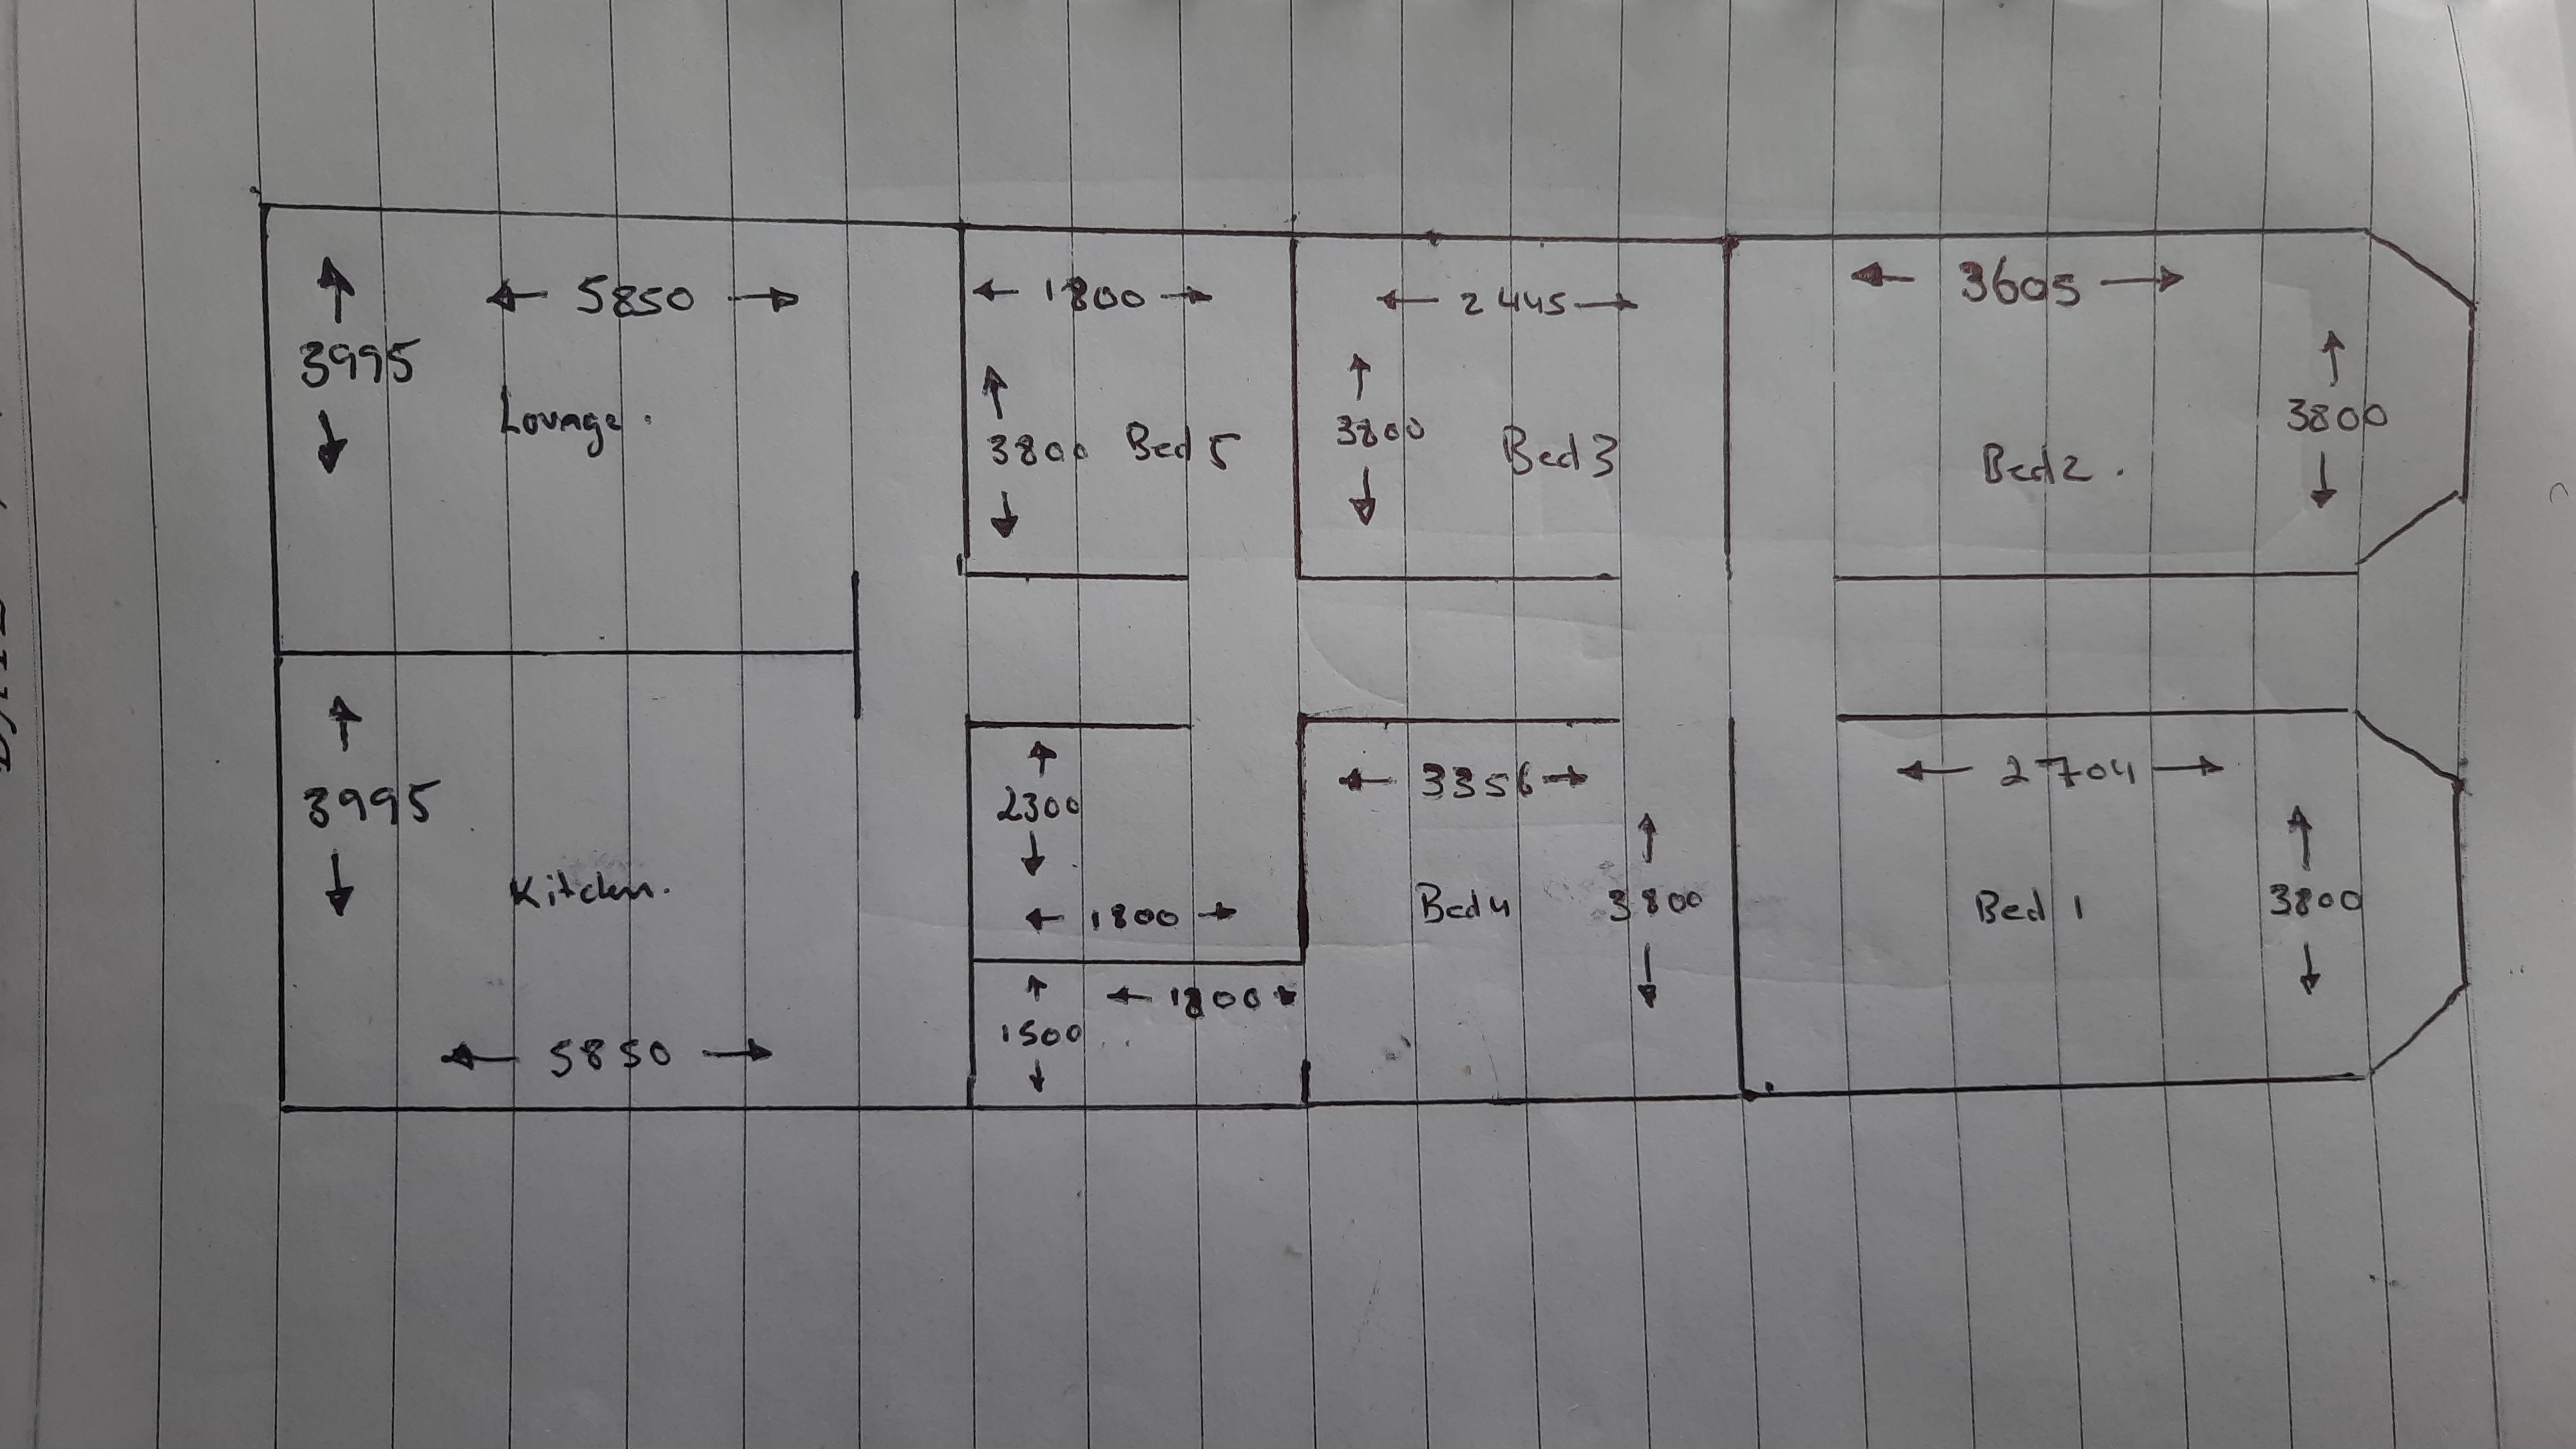 5850
3995
Lounge.
1800
3800
Bed 5
2445
3800
Bed 3
3605
3800
Bed 2.
3995
Kitchen.
5850
2300
1800
1800
1500
3356
Bed 4
3800
2704
3800
Bed 1